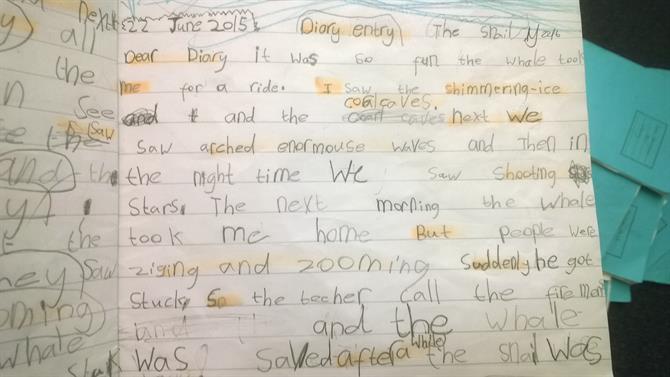 22 June 2015 Diary entry The snail
Dear Diary it was so fun the whale took
me for a ride. I saw the shimmering-ice
coalcaves.
and the next we
saw arched enormouse waves and Then in
the night time We saw shooting
Stars. The next morning the whale
took me home But people were
ziging and zooming Suddenly he got
Stuck So the techer call the fire man
and the whale
While
was saved after a the snail was
next
all
the
See
Saw
and
the
they Saw
oming
whale